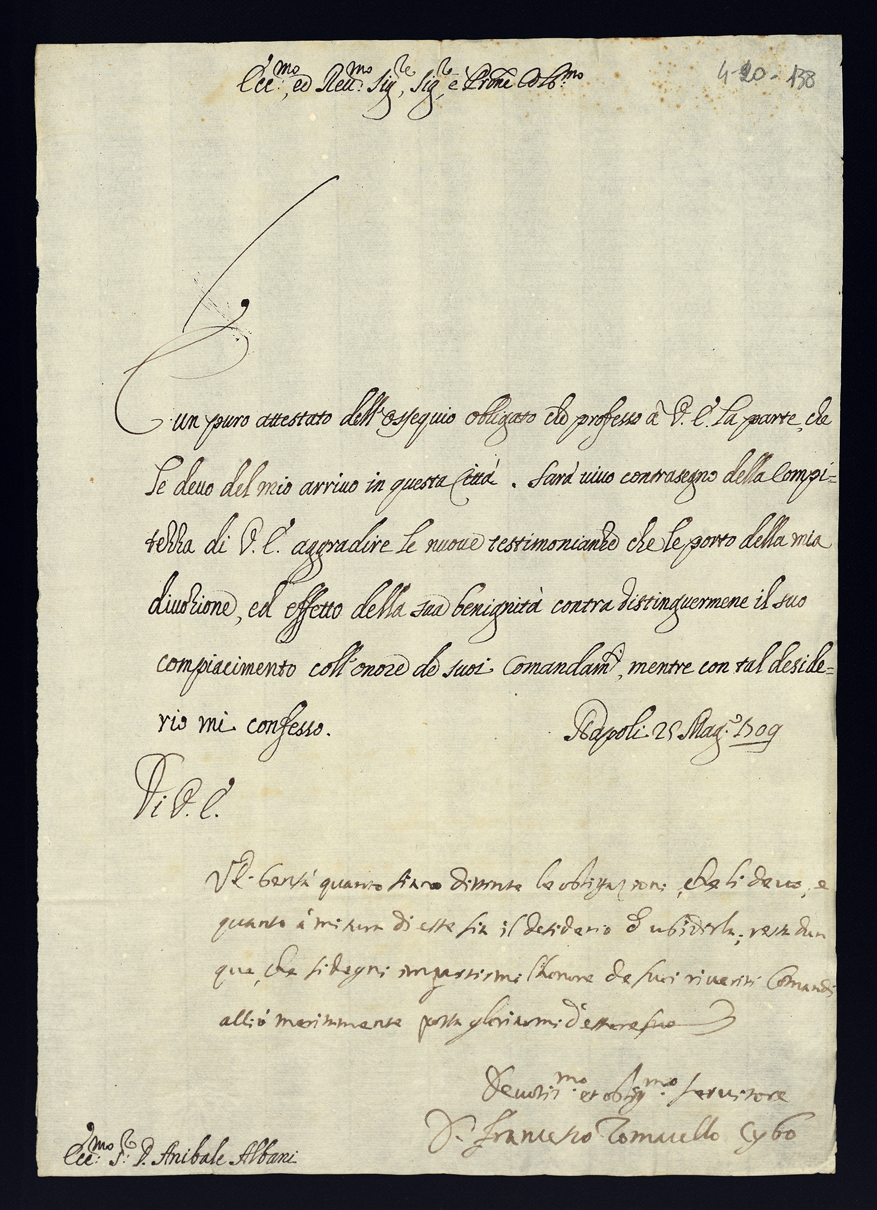 Ecc.mo, ed Reu.mo Sig.re, Sig.r e Prone Col.mo
4-20-138
È un puro attestato dell'ossequio obligato che professo à V. E. la parte, che
le deuo del mio arriuo in questa Città. Sarà viuo contrasegno della Compi=
tezza di V. E. aggradire le nuoue testimonianze che le porto della mia
diuozione, ed effetto della sua benignità contradistinguermene il suo
compiacimento coll'onore de suoi Comandam.ti, mentre con tal deside=
rio mi confesso. Napoli 25 Mag.o 1709
Di V. E.
VE. quanto siano distinte le obligazioni, che li deuo, e
quanto à misura di esse sia il desiderio d'ubidirla; resta dun
que, che si degni impartirmi l'honore de suoi riueriti Comandi
acciò maggiormente possa gloriarmi d'essere suo
Deuotis.mo et oblig.mo seruitore
D. Francesco Tomacello Cybo
Ecc.mo S.r D. Anibale Albani